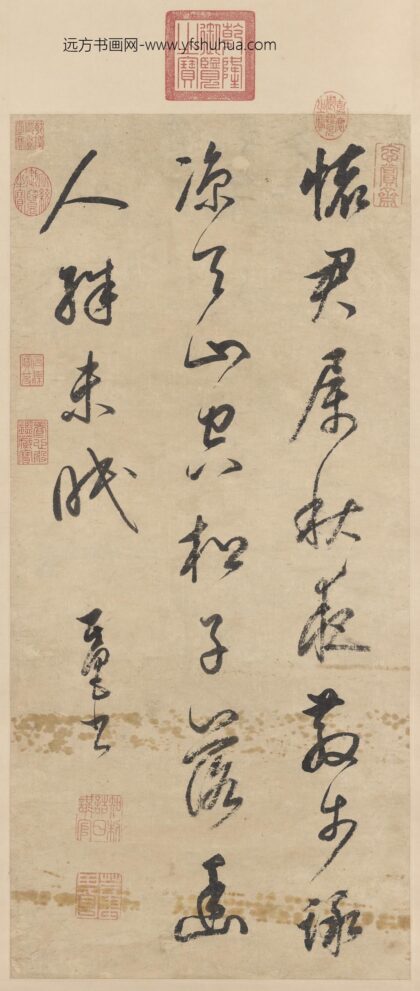 远方书画网-www.yfshuhua.com
乾隆御覽之寶
懷君属秋夜散步詠
凉天山空松子落幽
人殊未眠
其昌書